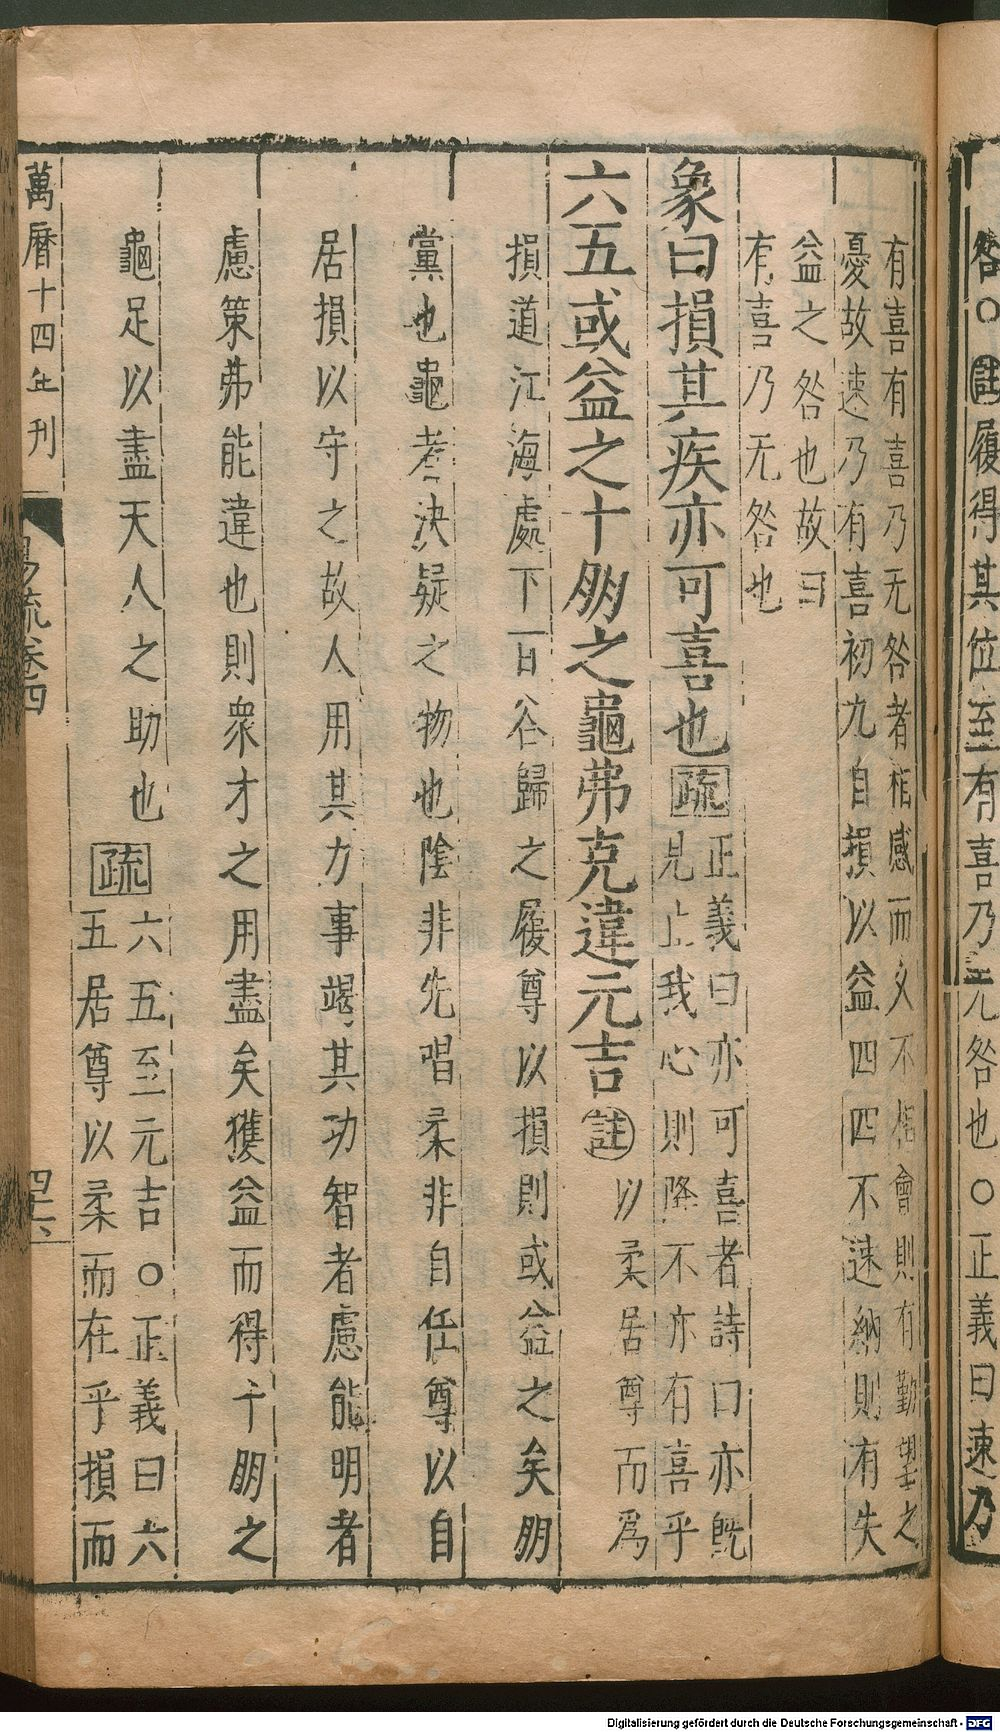 咎○註履得其位至有喜乃无咎也○正義曰速乃
有喜有喜乃无咎者相感而乂不相會則有勤望之
憂故速乃有喜初九自損以益四四不速納則有失
益之咎也故曰
有喜乃无咎也
象曰損其疾亦可喜也疏
正義曰亦可喜者詩曰亦既
見止我心則降不亦有喜乎
六五或益之十朋之龜弗克違元吉註
以柔居尊而爲
損道江海處下百谷歸之履尊以損則或益之矣朋
黨也龜者決疑之物也陰非先唱柔非自任尊以自
居損以守之故人用其力事竭其功智者慮能明者
慮策弗能違也則衆才之用盡矣獲益而得十朋之
龜足以盡天人之助也疏
六五至元吉○正義曰六
五居尊以柔而在乎損而
萬曆十四年刊
易疏卷四
四十六
Digitalisierung gefördert durch die Deutsche Forschungsgemeinschaft - DFG